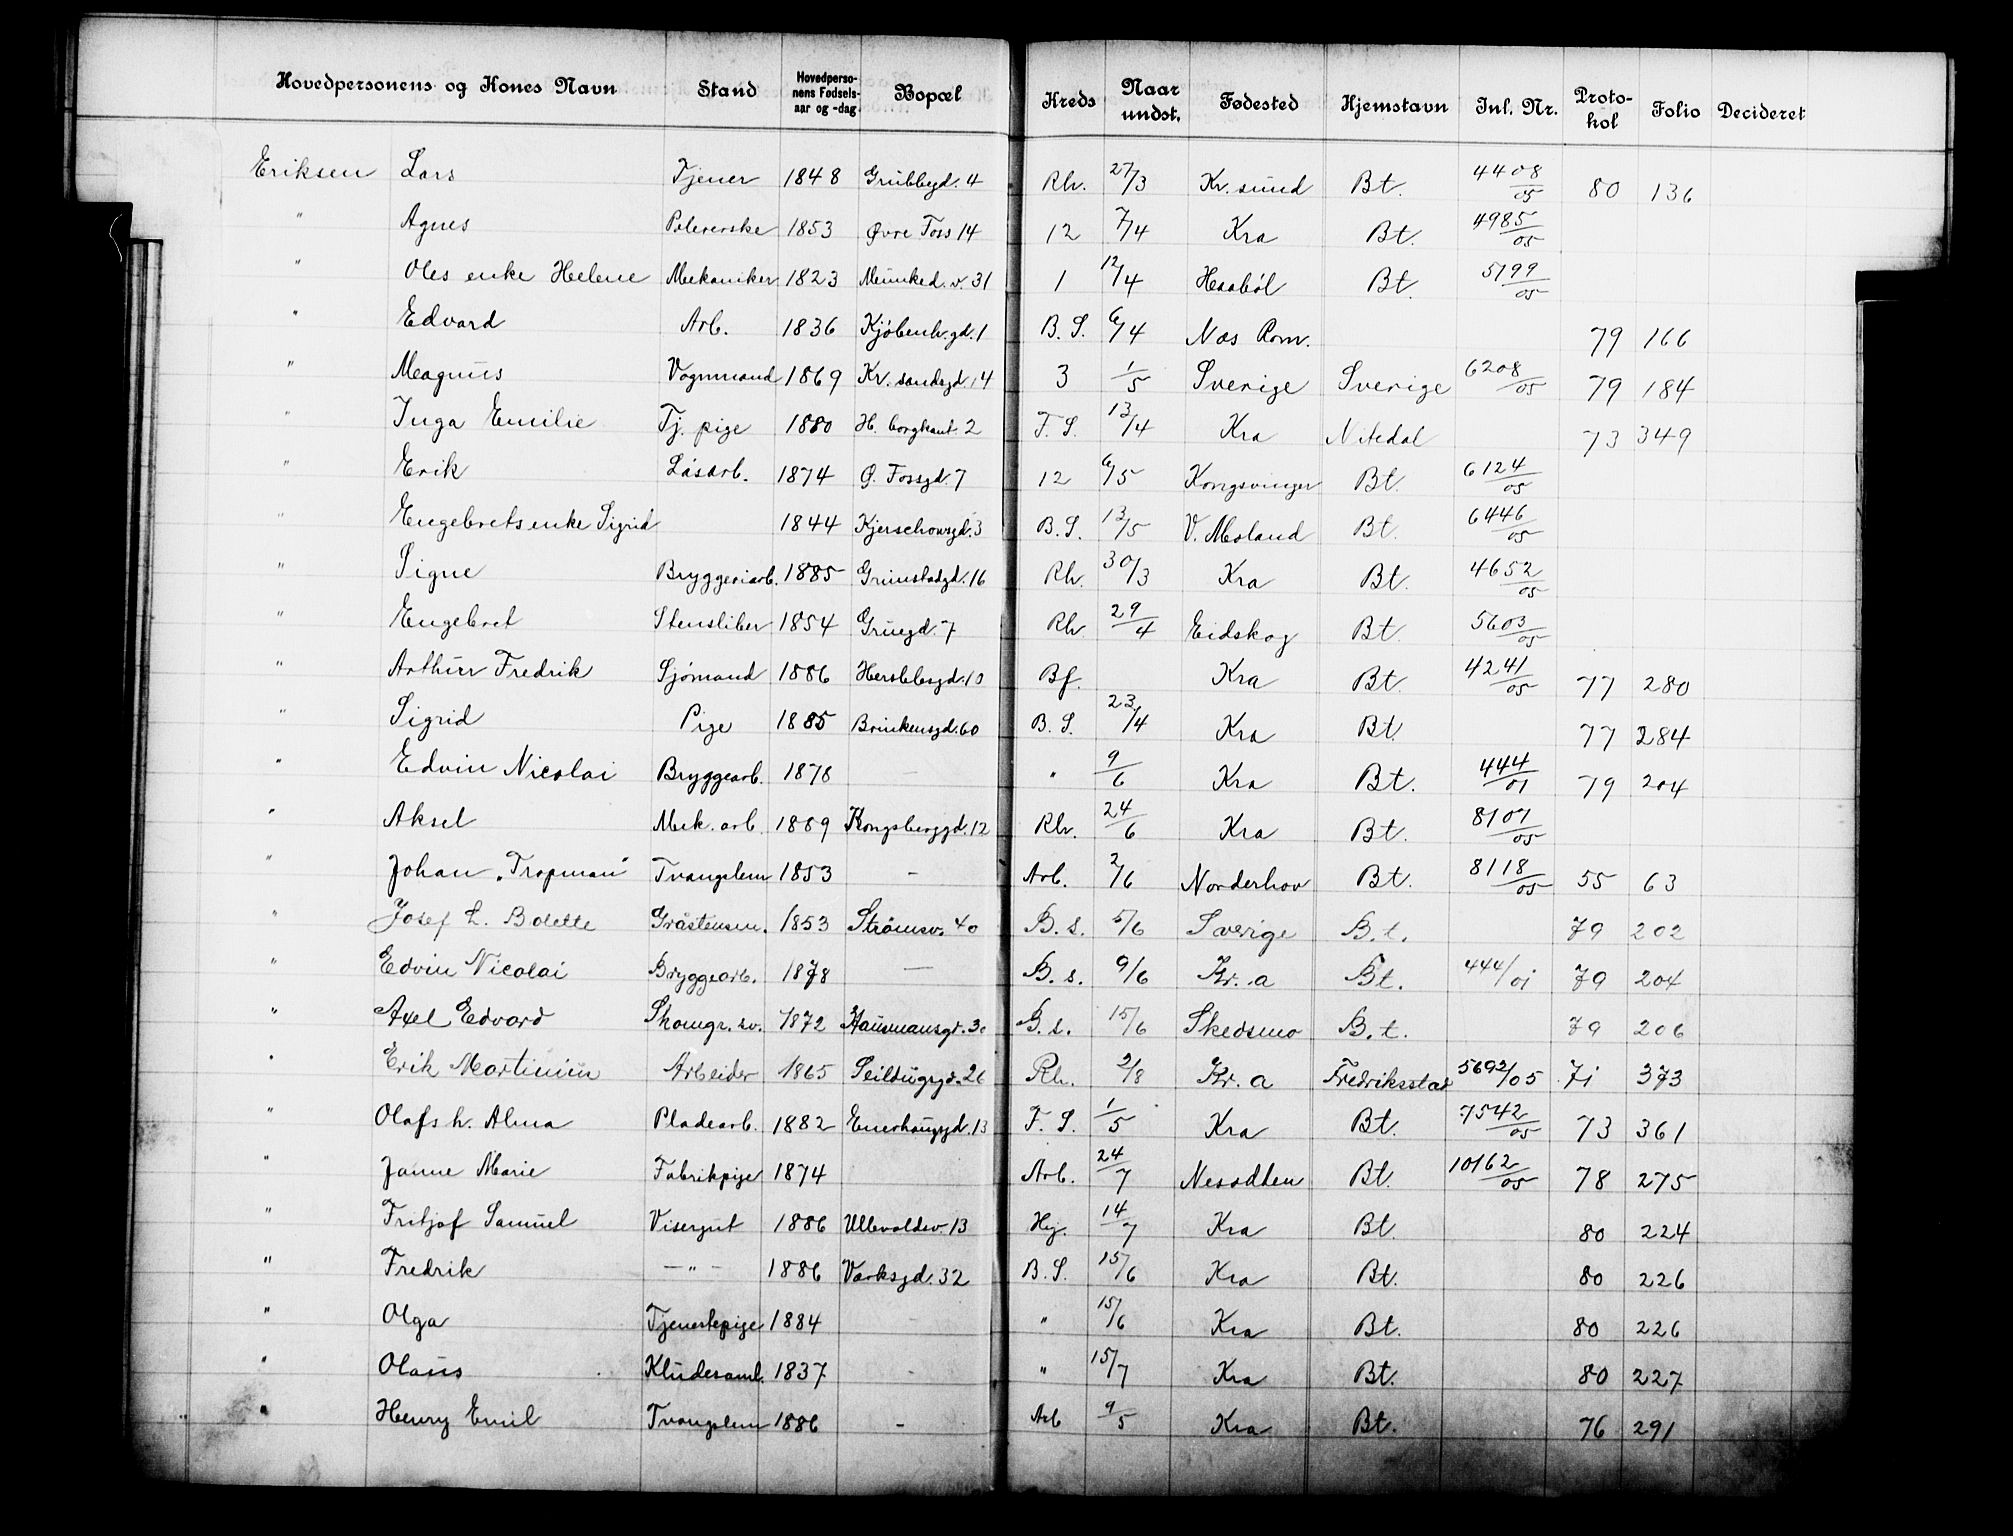 Hovedpersonens og Kones Navn Stand Hovedpersonens Fødselsaar og -dag. Bopæl Kreds Naar undst. Fødested Hjemstavn Inl. Nr. Protokol Folio Decideret
Eriksen Lars Tjener 1848 Grubbegd. 4 Rh. 27/3 Kr. sund Bt. 4408/05 80 136
" Agnes Polererske 1853 Øvre Foss 14 12 7/4 Kra Bt. 4985/05
" Oles enke Helene Mekaniker 1823 Munked. v. 31 1 12/4 Haabøl Bt. 5199/05
" Edvard Arb. 1836 Kjøbenh. gd. 1 B. S. 6/4 Næs Rom. 79 166
" Magnus Vognmand 1869 Kr. sandsgd. 14 3 1/5 Sverige Sverige 6208/05 79 184
" Inga Emilie Tj. pige 1880 H. borgkant. 2 F. S. 13/4 Kra Nitedal 73 349
" Erik Løsarb. 1874 Ø. Fossgd. 7 12 6/5 Kongsvinger Bt. 6124/05
" Engebrets enke Sigrid 1844 Kjerschowsgd. 3 B. S. 13/5 V. Moland Bt. 6446/05
" Signe Bryggeriarb. 1885 Grimstadgd. 16 Rh. 30/3 Kra Bt. 4652/05
" Engebret Stensliber 1854 Gruegd. 7 Rh 29/4 Eidskog Bt. 5603/05
" Arthur Fredrik Sjømand 1886 Herslebsgd. 10 Bf. Kra Bt. 4241/05 77 280
" Sigrid Pige 1885 Brinkensgd. 60 B. S. 23/4 Kra Bt. 77 284
" Edvin Nicolai Bryggearb. 1878 — " 9/6 Kra Bt. 444/01 79 204
" Aksel Mek. arb. 1889 Kongsberggd. 12 Rh. 24/6 Kra Bt. 8107/05
" Johan „Tropman" Tvangslem 1853 - Arb. 2/6 Norderhov Bt. 8118/05 55 63
" Josef h. Bolette Gråstensm. 1853 Strømsv. 40 B. s. 5/6 Sverige B. t. 79 202
" Edvin Nicolai Bryggearb. 1878 — B. s. 9/6 Kr. a Bt. 444/01 79 204
" Axel Edvard Skomgr. sv. 1872 Hausmansgt. B. s. 15/6 Skedsmo B. t. 79 206
" Erik Martinius Arbeider 1865 Seildugsgd. 26 Rh. 2/8 Kr. a Fredriksstad 5692/05 71 373
" Olafs h. Alma Pladearb. 1882 Enerhauggd. 13 F. S. 1/5 Kra Bt. 7542/05 73 361
" Janne Marie Fabrikpige 1874 Arb. 24/7 Nesodden Bt. 10162/05 78 275
" Fritjof Samuel Visergut 1886 Ullevoldsv. 13 Hg. 14/7 Kra Bt. 80 224
" Fredrik — " — 1886 Værksgd. 32 B. S. 15/6 Kra Bt. 80 226
" Olga Tjenestepige 1884 " 15/6 Kra Bt. 80 226
" Olaus Kludesaml. 1837 - " 15/7 Kra Bt. 80 227
" Henry Emil Tvangslem 1886 - Arb 9/5 Kra Bt. 76 291